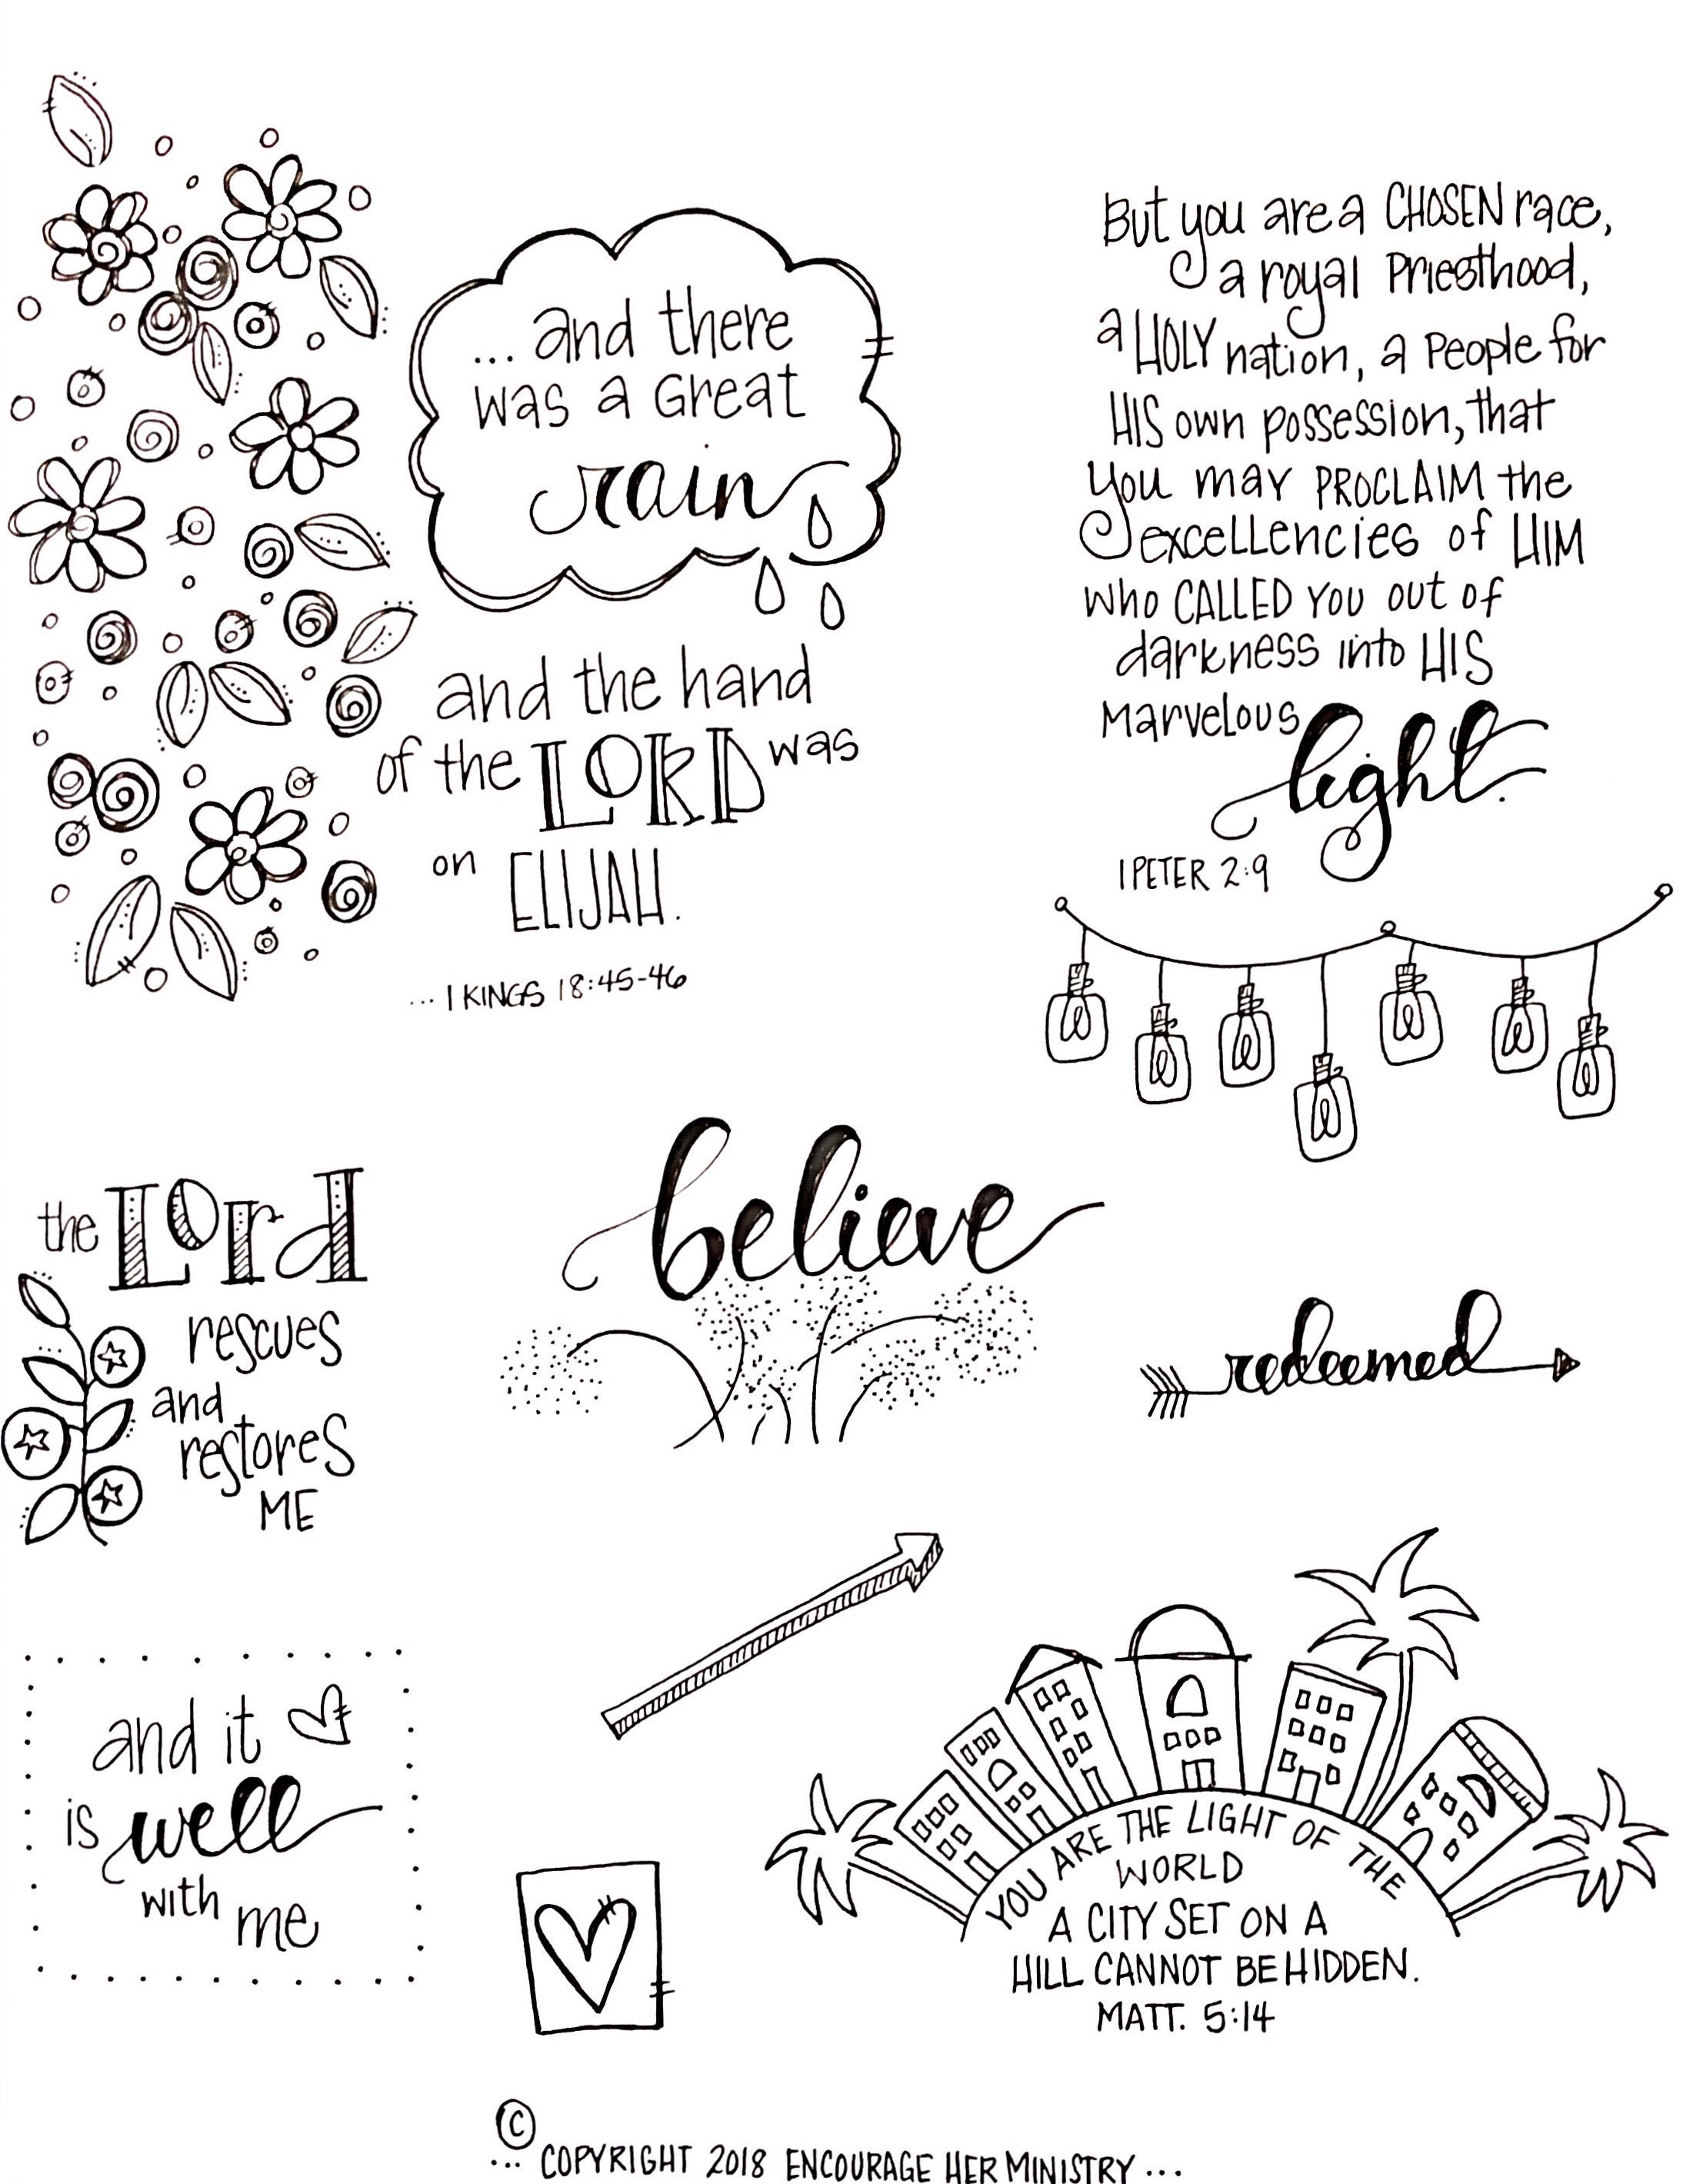 ... and there
was a Great
rain
and the hand
of the LORD was
on ELIJAH.
... 1 KINGS 18:45-46
But you are a CHOSEN race,
a royal Priesthood,
a HOLY nation, a People for
HIS own possession, that
You may PROCLAIM the
excellencies of HIM
who CALLED YOU out of
darkness into HIS
Marvelous light.
1 PETER 2:9
the Lord
rescues
and
restores
ME
believe
redeemed
and it
is well
with me
YOU ARE THE LIGHT OF THE
WORLD
A CITY SET ON A
HILL CANNOT BE HIDDEN.
MATT. 5:14
©
... COPYRIGHT 2018 ENCOURAGE HER MINISTRY ...